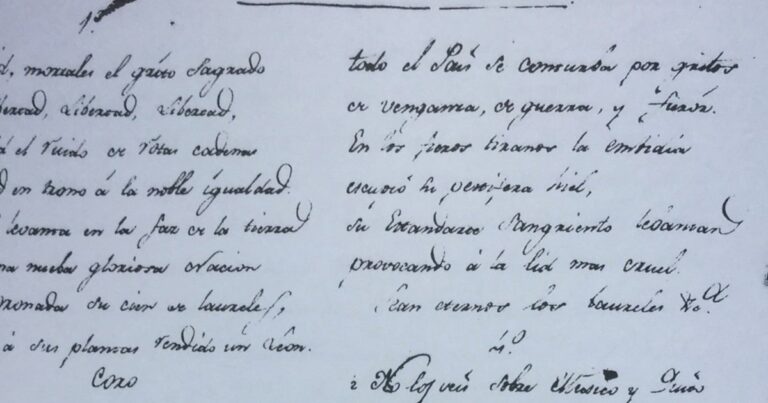 1º
d, mortales el grito Sagrado
bertad, Libertad, Libertad,
d el ruido de rotas cadenas
d en trono á la noble igualdad.
levanta en la faz de la tierra
na nueba gloriosa Nacion
oronada su cien de laureles,
á sus plantas rendido un Leon.
Coro
todo el País se conturba por gritos
de venganza, de guerra, y furór.
En los fieros tiranos la embidia
escupió su pestifera hiel,
su Estandarte Sangriento lebantan
provocando á la lid mas cruel.
Sean eternos los Laureles &c.ª
4º
No los veis sobre Mexico y Quito